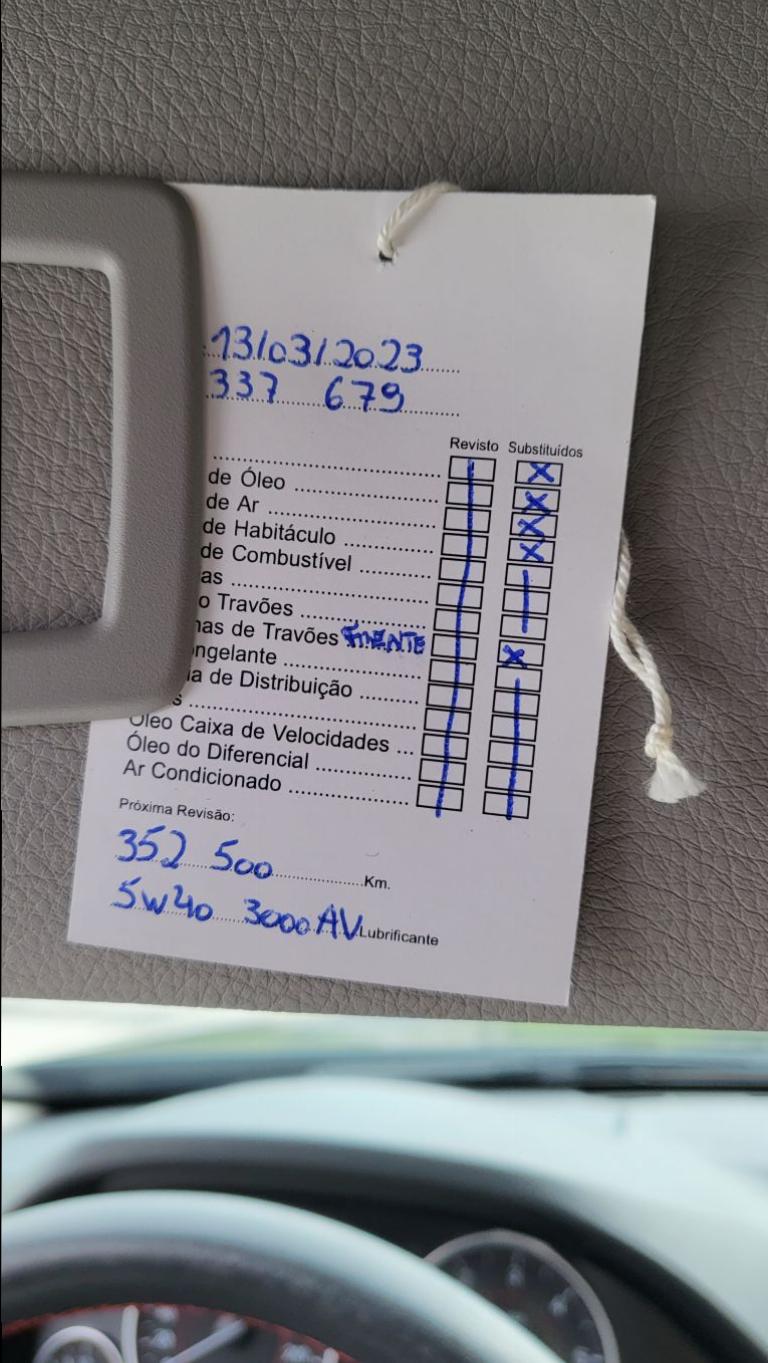 13/03/2023
337 679
Revisto Substituídos
de Óleo
de Ar
de Habitáculo
de Combustível
as
o Travões
nas de Travões FRENTE
ngelante
ia de Distribuição
s
Óleo Caixa de Velocidades
Óleo do Diferencial
Ar Condicionado
Próxima Revisão:
352 500 Km.
5W40 3000 AV Lubrificante